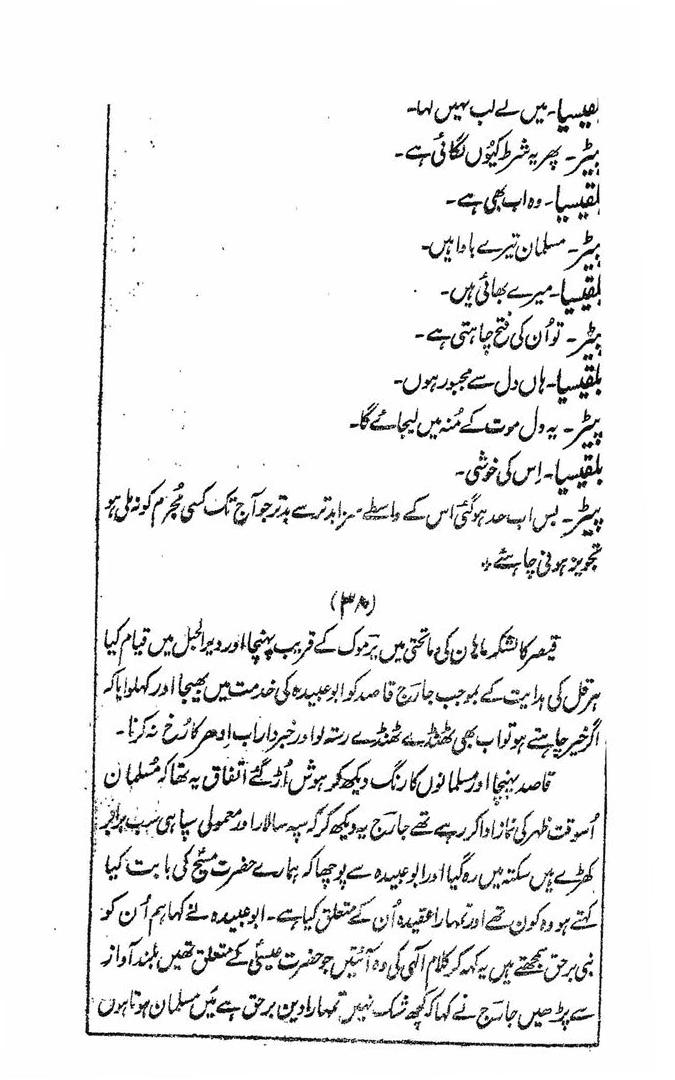 بلقیسیا۔ میں نے کب نہیں کہا۔
پیٹر۔ پھر یہ شرط کیوں لگائی ہے۔
بلقیسیا۔ وہ اب بھی ہے۔
پیٹر۔ مسلمان تیرے باوا ہیں۔
بلقیسیا۔ میرے بھائی ہیں۔
پیٹر۔ تو اُن کی فتح چاہتی ہے۔
بلقیسیا۔ ہاں دل سے مجبور ہوں۔
پیٹر۔ یہ دل موت کے مُنہ میں لیجائے گا۔
بلقیسیا۔ اِس کی خوشی۔
پیٹر۔ بس اب حد ہو گئی اس کے واسطے سزا بدتر سے بدتر جو آج تک کسی مُجرم کو نہ ملی ہو
تجویز ہونی چاہئے۔
(۳۸)
قیصر کا لشکر ماہان کی ماتحتی میں یرموک کے قریب پہنچا اور دیر الجبل میں قیام کیا
ہرقل کی ہدایت کے بموجب جارج قاصد کو ابو عبیدہ کی خدمت میں بھیجا اور کہلوایا کہ
اگر خیر چاہتے ہو تو اب بھی ٹھنڈے ٹھنڈے رستہ لو اور خبردار اب اِدھر کا رُخ نہ کرنا۔
قاصد پہنچا اور مسلمانوں کا رنگ دیکھ کر ہوش اُڑ گئے اتفاق یہ تھا کہ مُسلمان
اُسوقت ظہر کی نماز ادا کر رہے تھے جارج یہ دیکھ کر کہ سپہ سالار اور معمولی سپاہی سب برابر
کھڑے ہیں سکتہ میں رہ گیا اور ابو عبیدہ سے پوچھا کہ ہمارے حضرت مسیح کی بابت کیا
کہتے ہو وہ کون تھے اور تمہارا عقیدہ اُن کے متعلق کیا ہے۔ ابو عبیدہ نے کہا ہم اُن کو
نبی برحق سمجھتے ہیں یہ کہہ کر کلام الٰہی کی وہ آئتیں جو حضرت عیسیٰ کے متعلق تھیں بلند آواز
سے پڑھیں جارج نے کہا کہ کچھ شک نہیں تمہارا دین برحق ہے میں مسلمان ہوتا ہوں